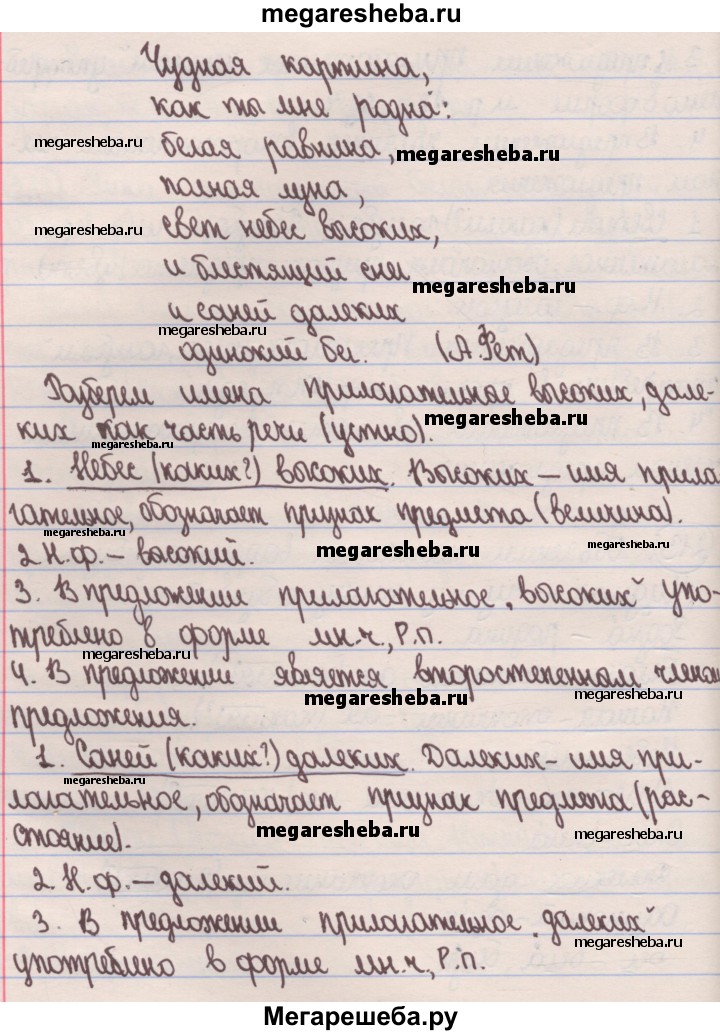 megaresheba.ru
Чудная картина,
как ты мне родна:
megaresheba.ru
белая равнина,
megaresheba.ru
полная луна,
megaresheba.ru
свет небес высоких,
и блестящий снег
megaresheba.ru
и саней далеких
megaresheba.ru
одинокий бег. (А. Фет)
Разберем имена прилагательное высоких, дале-
megaresheba.ru
ких как часть речи (устно).
megaresheba.ru
1. Небес (каких?) высоких. Высоких – имя прила
гательное, обозначает признак предмета (величина).
megaresheba.ru
2 Н.ф. – высокий.
megaresheba.ru
megaresheba.ru
3. В предложении прилагательное „высоких" упо-
треблено в форме мн.ч., Р.п.
megaresheba.ru
4. В предложении является второстепенном членом
megaresheba.ru
megaresheba.ru
предложения.
1. Саней (каких?) далеких. Далеких – имя при-
megaresheba.ru
лагательное, обозначает признак предмета (рас-
megaresheba.ru
megaresheba.ru
стояние).
2 Н.ф. – далекий.
3. В предложении прилагательное „далеких"
megaresheba.ru
употреблено в форме мн.ч., Р.п.
Мегарешеба.ру